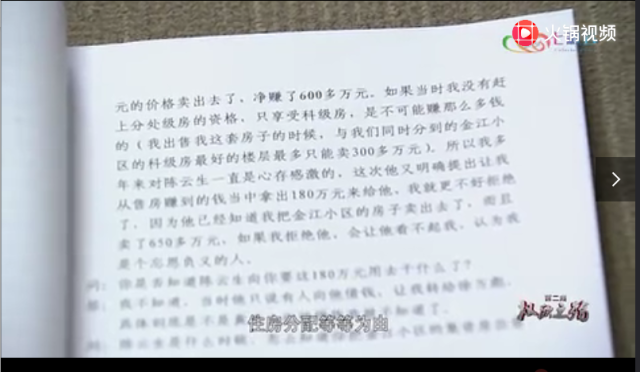 火锅视频
元的价格卖出去了，净赚了600多万元。如果当时我没有赶
上分处级房的资格，只享受科级房，是不可能赚那么多钱
的（我出售我这套房子的时候，与我们同时分到的金江小
区的科级房最好的楼层最多只能卖300多万元）。所以我多
年来对陈云生一直是心存感激的，这次他又明确提出让我
从售房赚到的钱当中拿出180万元来给他，我就更不好拒绝
了，因为他已经知道我把金江小区的房子卖出去了，而且
卖了650多万元，如果我拒绝他，会让他看不起我，认为我
是个忘恩负义的人。
问：你是否知道陈云生向你要这180万元用去干什么了？
我不知道，当时他只说有人向他借钱，让我转给
具体到底是不是 知道了。
陈云生是什么时候
住房分配等等为由
第二集